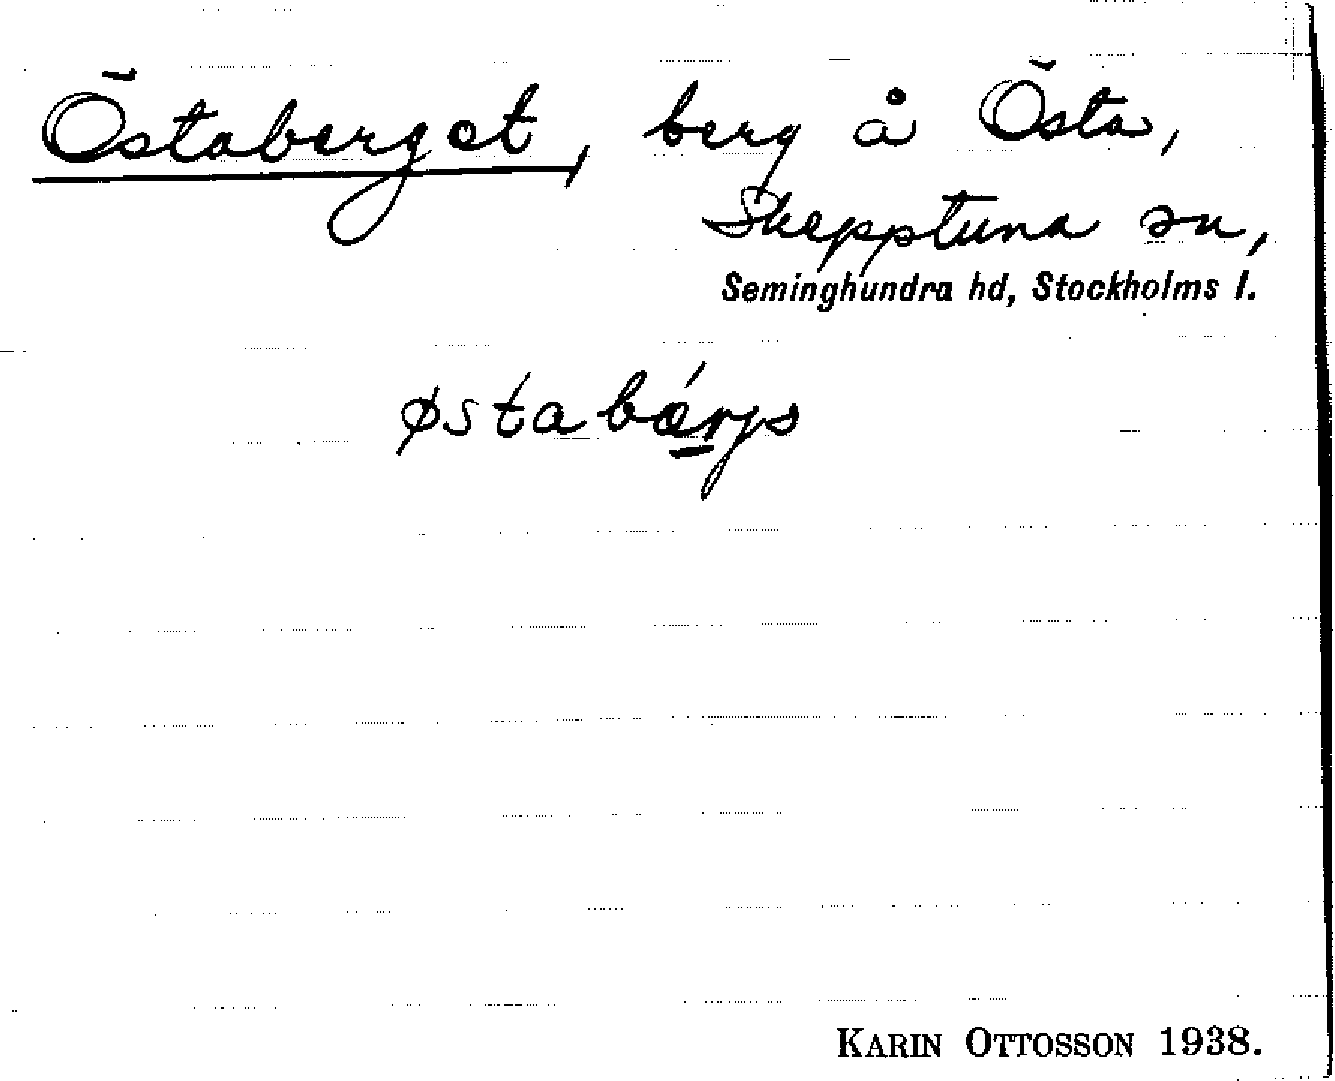 Östaberget, berg å Östa,
Skepptuna sn,
Seminghundra hd, Stockholms l.
østabærjs
KARIN OTTOSSON 1938.